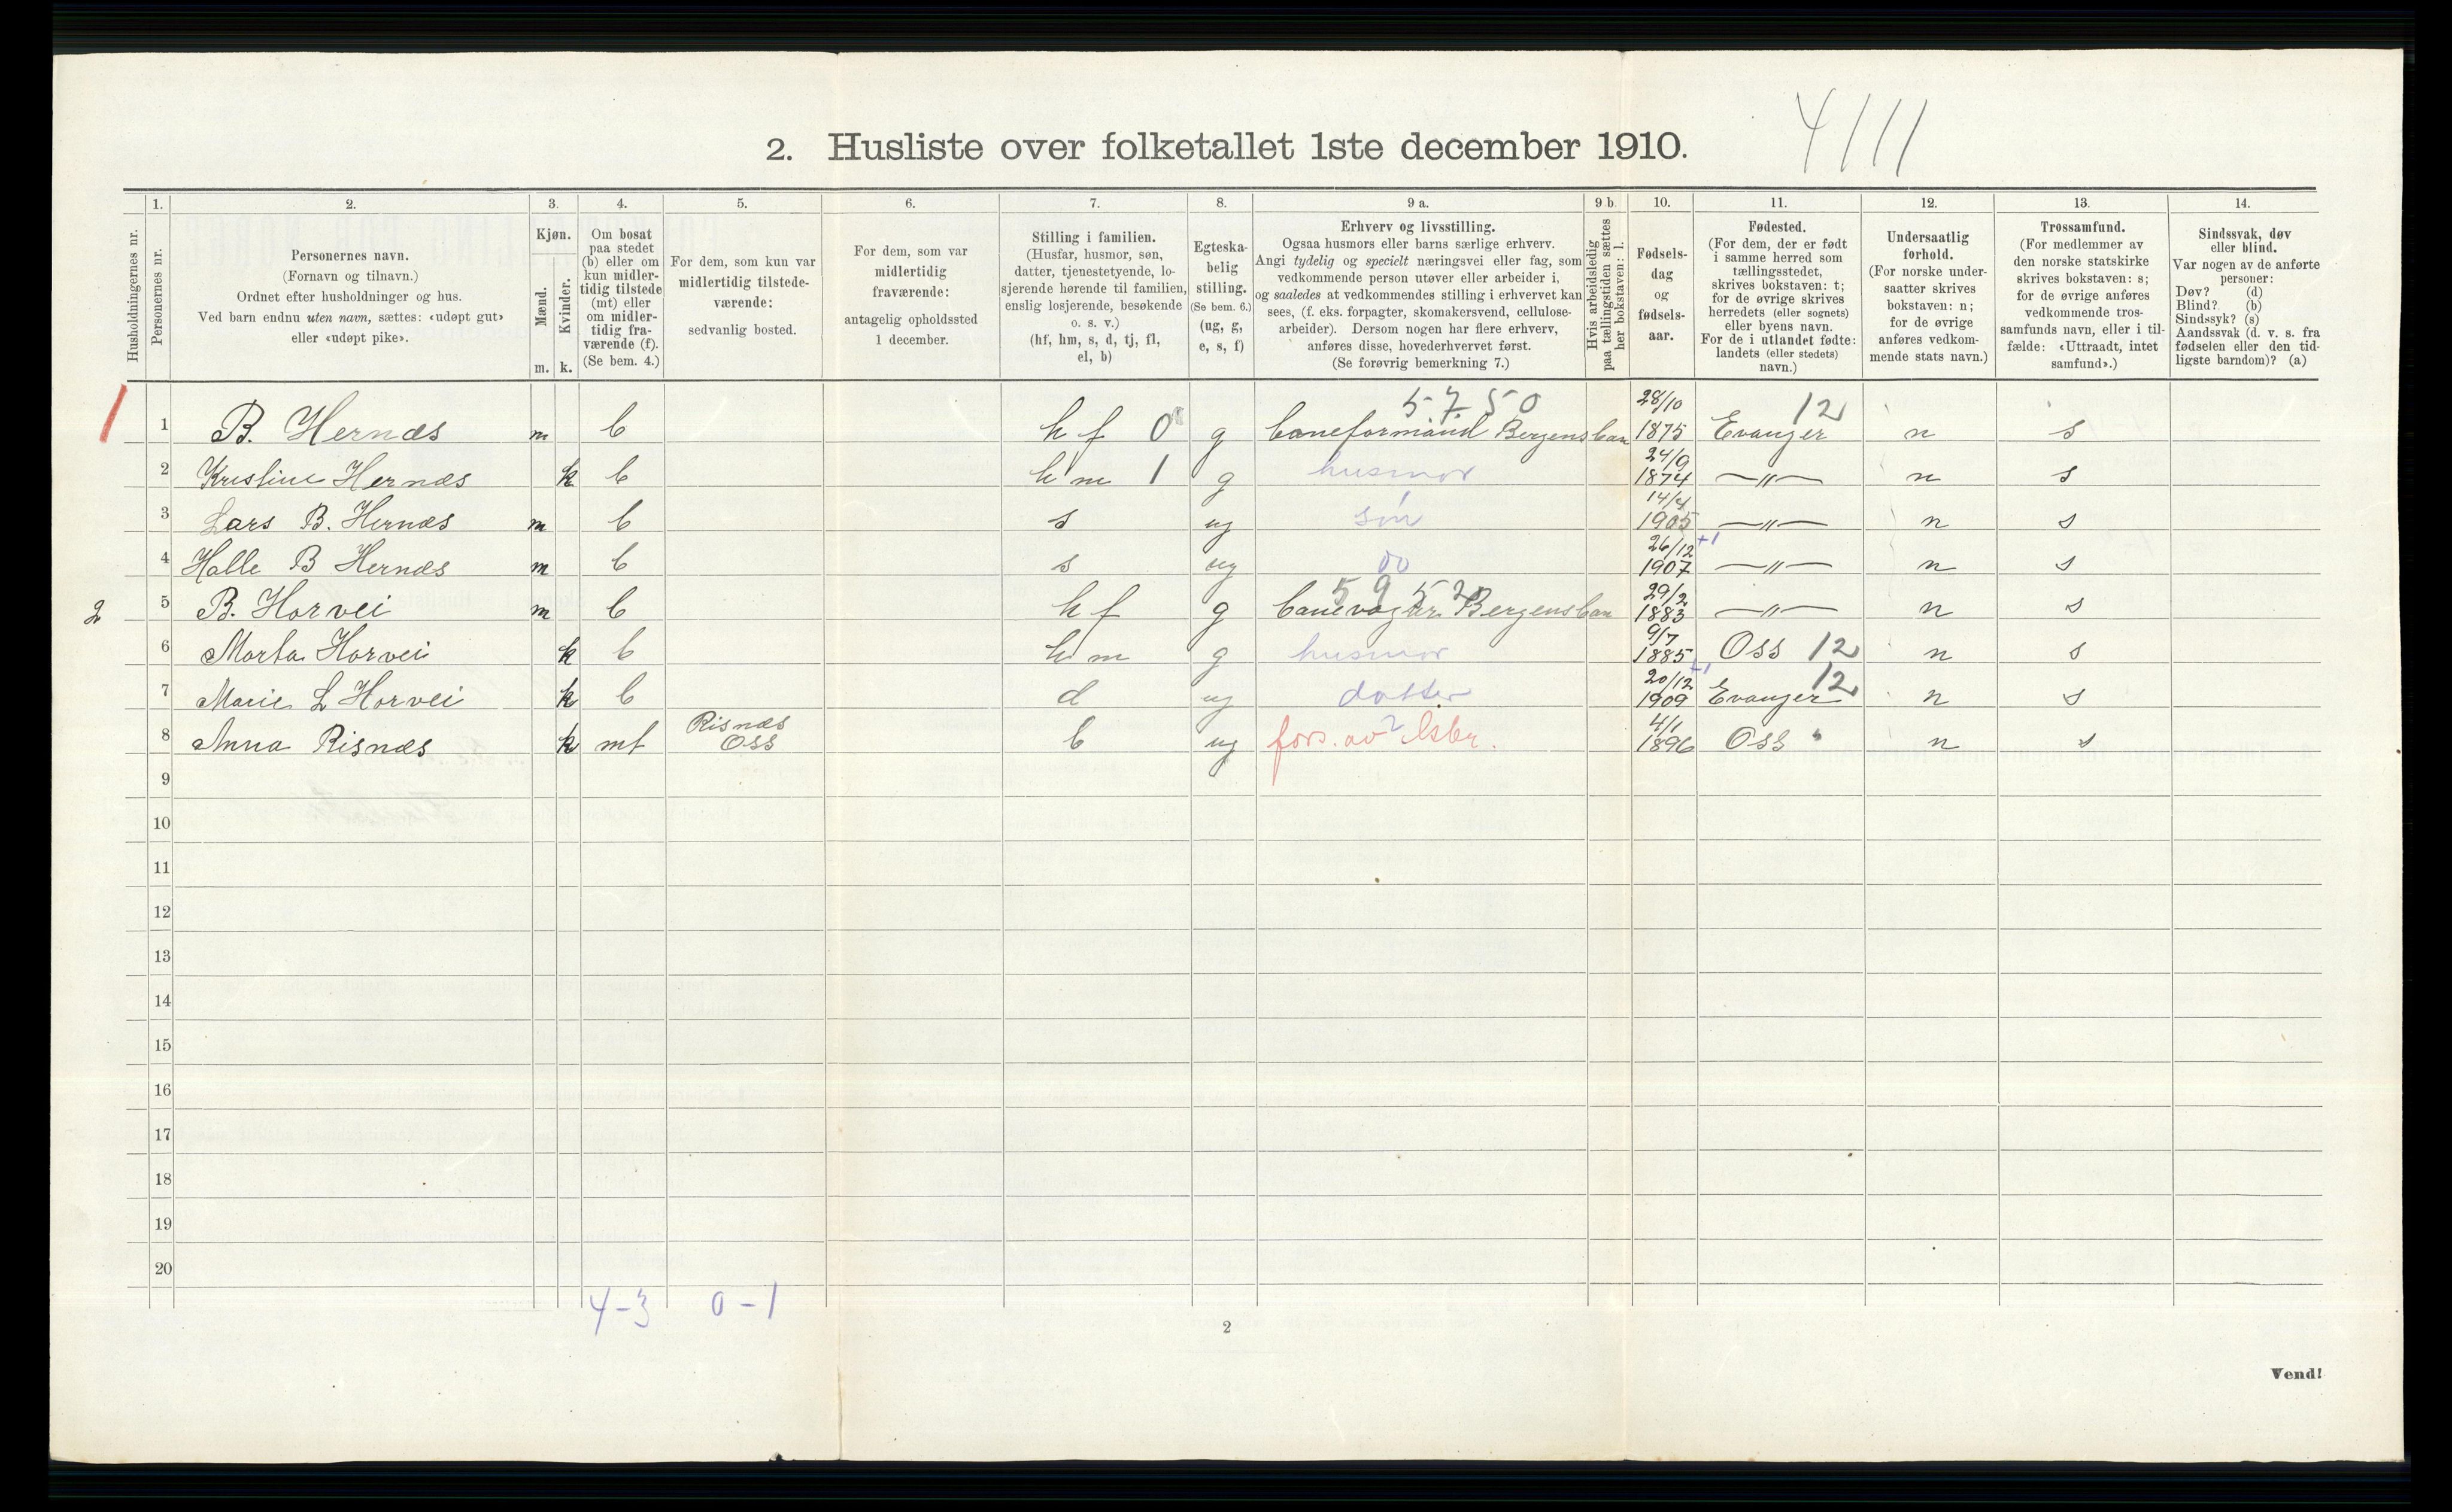 4111
2. Husliste over folketallet 1ste december 1910.
Husholdningernes nr.
1.
Personernes nr.
2.
Personernes navn.
(Fornavn og tilnavn.)
Ordnet efter husholdninger og hus.
Ved barn endnu uten navn, sættes: «udøpt gut»
eller «udøpt pike».
3.
Kjøn.
Mænd.
Kvinder.
m. k.
4.
Om bosat
paa stedet
(b) eller om
kun midler-
tidig tilstede
(mt) eller
om midler-
tidig fra-
værende (f).
(Se bem. 4.)
5.
For dem, som kun var
midlertidig tilstede-
værende:
sedvanlig bosted.
6.
For dem, som var
midlertidig
fraværende:
antagelig opholdssted
1 december.
7.
Stilling i familien.
(Husfar, husmor, søn,
datter, tjenestetyende, lo-
sjerende hørende til familien,
enslig losjerende, besøkende
o. s. v.)
(hf, hm, s, d, tj, fl,
el, b)
8.
Egteska-
belig
stilling.
(Se bem. 6.)
(ug, g,
e, s, f)
9 a.
Erhverv og livsstilling.
Ogsaa husmors eller barns særlige erhverv.
Angi tydelig og specielt næringsvei eller fag, som
vedkommende person utøver eller arbeider i,
og saaledes at vedkommendes stilling i erhvervet kan
sees, (f. eks. forpagter, skomakersvend, cellulose-
arbeider). Dersom nogen har flere erhverv,
anføres disse, hovederhvervet først.
(Se forøvrig bemerkning 7.)
9 b.
Hvis arbeidsledig
paa tællingstiden sættes
her bokstaven: l.
10.
Fødsels-
dag
og
fødsels-
aar.
11.
Fødested.
(For dem, der er født
i samme herred som
tællingsstedet,
skrives bokstaven: t;
for de øvrige skrives
herredets (eller sognets)
eller byens navn.
For de i utlandet fødte:
landets (eller stedets)
navn.)
12.
Undersaatlig
forhold.
(For norske under-
saatter skrives
bokstaven: n;
for de øvrige
anføres vedkom-
mende stats navn.)
13.
Trossamfund.
(For medlemmer av
den norske statskirke
skrives bokstaven: s;
for de øvrige anføres
vedkommende tros-
samfunds navn, eller i til-
fælde: «Uttraadt, intet
samfund».)
14.
Sindssvak, døv
eller blind.
Var nogen av de anførte
personer:
Døv? (d)
Blind? (b)
Sindssyk? (s)
Aandssvak (d. v. s. fra
fødselen eller den tid-
ligste barndom)? (a)
5.7.50 28/10 12
1 1 B. Hernæs m b hf 0 g baneformand Bergensban 1875 Evanger n s
24/9
2 Kristine Hernæs k b hm 1 g husmor 1874 —〃— n s
14/4
3 Lars B. Hernæs m b s ug sön 1905 —〃— n s
26/12 +1
4 Halle B Hernæs m b s ug do 1907 —〃— n s
5 9 5 2 29/2
2 5 B. Horvei m b hf g banevogter Bergensban 1883 —〃— n s
9/7
6 Marta Horvei k b hm g husmor 1885 Oss 12 n s
20/12 +1 12
7 Marie L Horvei k b d ug datter 1909 Evanger n s
Risnæs 4/1
8 Anna Risnæs k mt Oss b ug fors. av 1896 Oss n s
9
10
11
12
13
14
15
16
17
18
19
20
4-3 0-1
2
Vend!